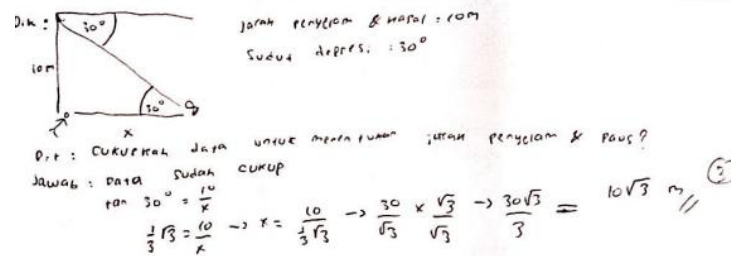 Dik : 30° jarak penyelam & kapal : 10m
10m Sudut depresi : 30°
30°
x
Dit : Cukupkah data untuk menentukan jarak penyelam & paus?
Jawab : Data sudah cukup
tan 30° = 10/x
1/3 √3 = 10/x -> x = 10/(1/3 √3) -> 30/√3 x √3/√3 -> 30√3/3 = 10√3 m //